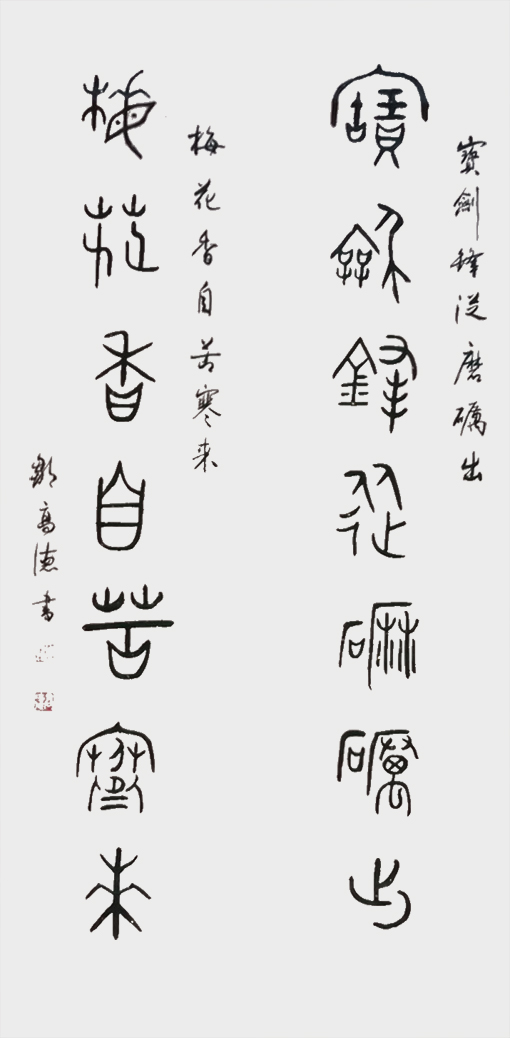 寶劍鋒從磨礪出
寶劍鋒從磨礪出
梅花香自苦寒来
梅花香自苦寒來
高德書